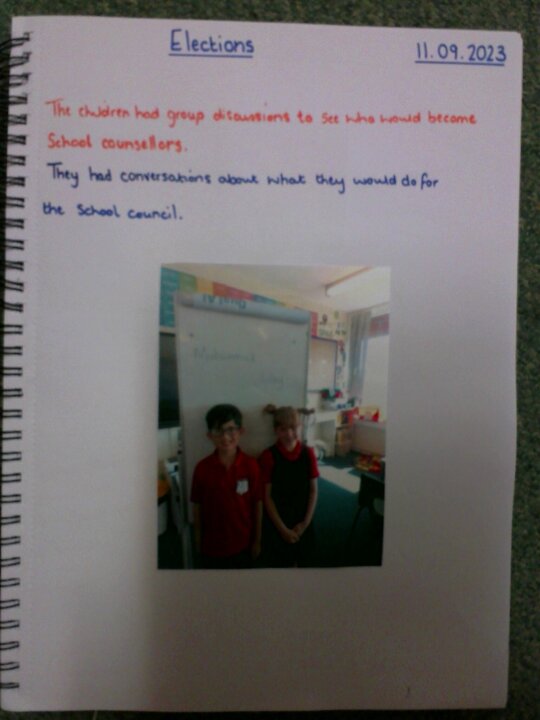 Elections
11.09.2023
The children had group discussions to see who would become
School counsellors.
They had conversations about what they would do for
the School council.